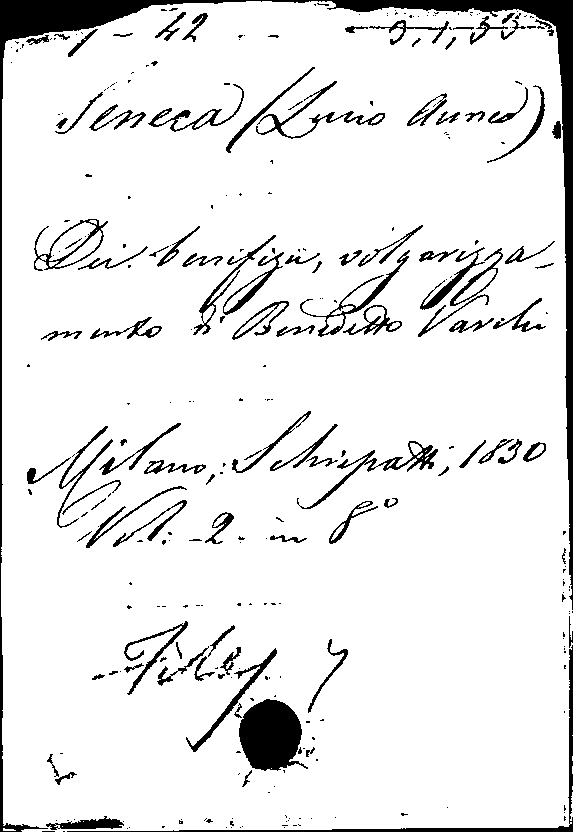 7 - 42 3,1,53
Seneca (Lucio Anneo)
Dei benefizii, volgarizza-
mento di Benedetto Varchi
Milano, Schiepatti, 1830
Vol. 2 in 8º
7